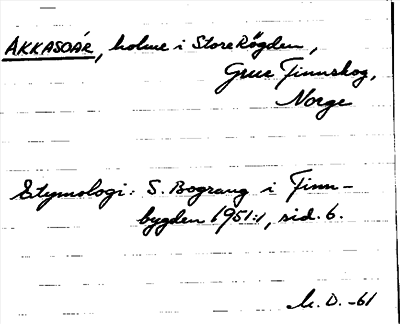 AKKASOAR, holme i Store Rögden,
Grue Finnskog,
Norge
Etymologi: S. Bograng i Finn-
bygden 1951:1, sid. 6.
M. D. -61